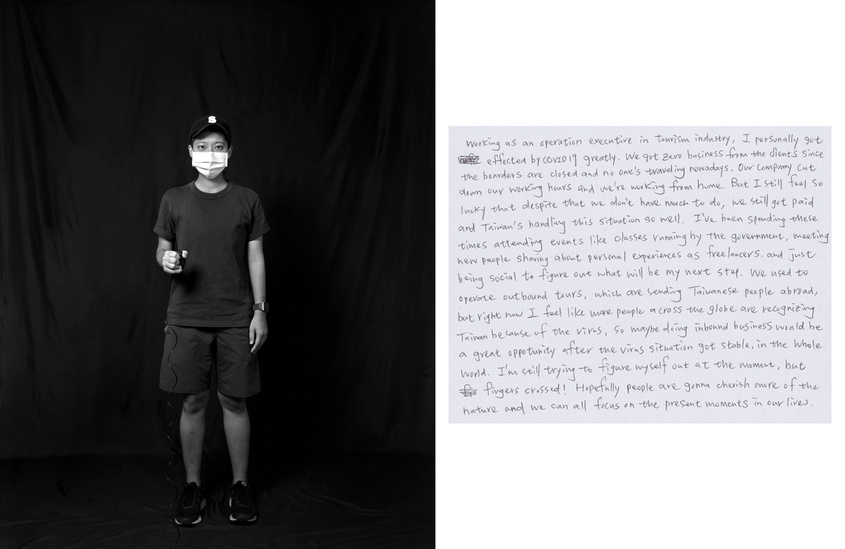 S
Working as an operation executive in tourism industry, I personally got
effected by COVID19 greatly. We got zero business from the clients since
the boarders are closed and no one's traveling nowadays. Our company cut
down our working hours and we're working from home. But I still feel so
lucky that despite that we don't have much to do, we still got paid
and Taiwan's handling this situation so well. I've been spending these
times attending events like classes running by the government, meeting
new people sharing about personal experiences as freelancers. and just
being social to figure out what will be my next step. We used to
operate outbound tours, which are sending Taiwanese people abroad,
but right now I feel like more people across the globe are recognizing
Taiwan because of the virus, so maybe doing inbound business would be
a great opportunity after the virus situation got stable. in the whole
world. I'm still trying to figure myself out at the moment, but
fingers crossed! Hopefully people are gonna cherish more of the
nature and we can all focus on the present moments in our lives.